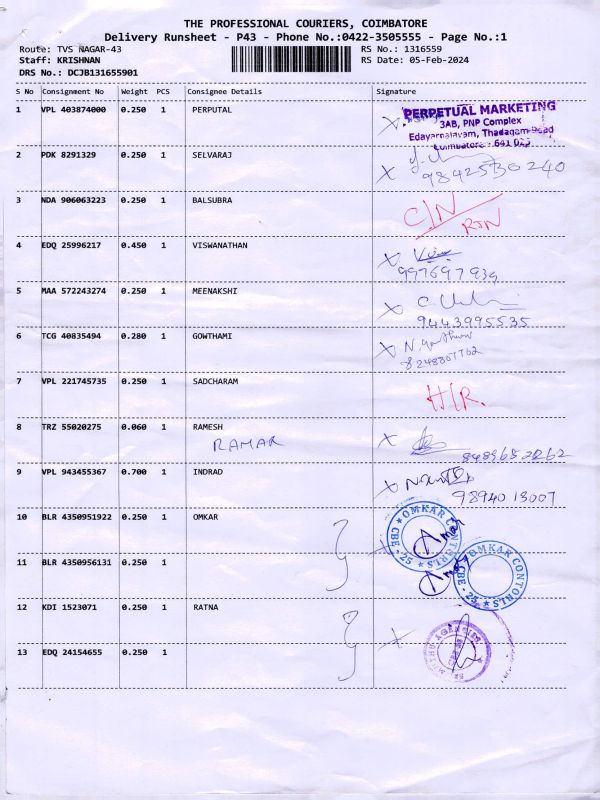 THE PROFESSIONAL COURIERS, COIMBATORE
Delivery Runsheet - P43 - Phone No.:0422-3505555 - Page No.:1
Route: TVS NAGAR-43 RS No.: 1316559
Staff: KRISHNAN RS Date: 05-Feb-2024
DRS No.: DCJB131655901
S No Consignment No Weight PCS Consignee Details Signature
1 VPL 403874000 0.250 1 PERPUTAL
PERPETUAL MARKETING
3AB, PNP Complex
Edayarnalayam, Thadagam Road
Coimbatore - 641 025
2 PDK 8291329 0.250 1 SELVARAJ
9842530240
3 NDA 906063223 0.250 1 BALSUBRA C/N
RJN
4 EDQ 25996217 0.450 1 VISWANATHAN
997697939
5 MAA 572243274 0.250 1 MEENAKSHI
9443995535
6 TCG 40835494 0.280 1 GOWTHAMI
7 VPL 221745735 0.250 1 SADCHARAM H/R.
8 TRZ 55020275 0.060 1 RAMESH
RAMAR
9 VPL 943455367 0.700 1 INDRAD
98940 13007
10 BLR 4350951922 0.250 1 OMKAR
OMKAR CONTORLS
CBE - 25
Amar
11 BLR 4350956131 0.250 1
OMKAR CONTORLS
CBE - 25
12 KDI 1523071 0.250 1 RATNA
13 EDQ 24154655 0.250 1